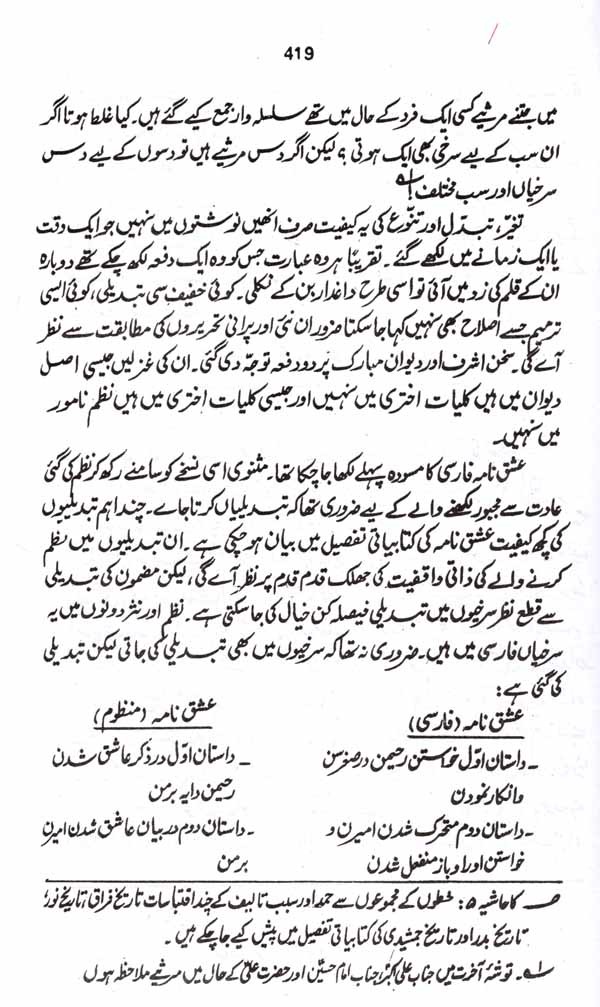 419
میں جتنے مرثیے کسی ایک فرد کے حال میں تھے سلسلہ وار جمع کیے گئے ہیں۔ کیا غلط ہوتا اگر
ان سب کے لیے سرخی بھی ایک ہوتی؟ لیکن اگر دس مرثیے ہیں تو دسوں کے لیے دس
سرخیاں اور سب مختلف! ؎۱
تغیّر، تبدّل اور تنوّع کی یہ کیفیت صرف انھیں نوشتوں میں نہیں جو ایک وقت
یا ایک زمانے میں لکھے گئے۔ تقریباً ہر وہ عبارت جس کو وہ ایک دفعہ لکھ چکے تھے دوبارہ
ان کے قلم کی زد میں آئی تو اسی طرح داغدار بن کے نکلی۔ کوئی خفیف سی تبدیلی، کوئی ایسی
ترمیم جسے اصلاح بھی نہیں کہا جا سکتا ضرور ان نئی اور پرانی تحریروں کی مطابقت سے نظر
آے گی۔ سخن اشرف اور دیوان مبارک پر دو دفعہ توجّہ دی گئی۔ ان کی غزلیں جیسی اصل
دیوان میں ہیں کلیات اختری میں نہیں اور جیسی کلیات اختری میں ہیں نظم نامور
میں نہیں۔
عشق نامہ فارسی کا مسودہ پہلے لکھا جا چکا تھا۔ مثنوی اسی نسخے کو سامنے رکھ کر نظم کی گئی
عادت سے مجبور لکھنے والے کے لیے ضروری تھا کہ تبدیلیاں کرتا جاے۔ چند اہم تبدیلیوں
کی کچھ کیفیت عشق نامہ کی کتابیاتی تفصیل میں بیان ہو چکی ہے۔ ان تبدیلیوں میں نظم
کرنے والے کی ذاتی واقفیت کی جھلک قدم قدم پر نظر آے گی، لیکن مضمون کی تبدیلی
سے قطع نظر سرخیوں میں تبدیلی فیصلہ کن خیال کی جا سکتی ہے۔ نظم اور نثر دونوں میں یہ
سرخیاں فارسی میں ہیں۔ ضروری نہ تھا کہ سرخیوں میں بھی تبدیلی کی جاتی لیکن تبدیلی
کی گئی ہے:
عشق نامہ (فارسی) عشق نامہ (منظوم)
۔ داستان اوّل خواستن رحیمن در صغر سن ۔ داستان اوّل در ذکر عاشق شدن
و انکار نمودن رحیمن دایہ بر من
۔ داستان دوم متحرک شدن امیرن و ۔ داستان دوم در بیان عاشق شدن امیرن
خواستن او را و باز منفعل شدن بر من
صـ کا حاشیہ ۵: خطوں کے مجموعوں سے حمد اور سبب تالیف کے چند اقتباسات تاریخ فراق، تاریخ نور،
تاریخ بدر اور تاریخ جمشیدی کی کتابیاتی تفصیل میں پیش کیے جا چکے ہیں۔
؎۱۔ توشۂ آخرت میں جناب علی اکبرؑ، جناب امام حسینؑ اور حضرت علیؑ کے حال میں مرثیے ملاحظہ ہوں